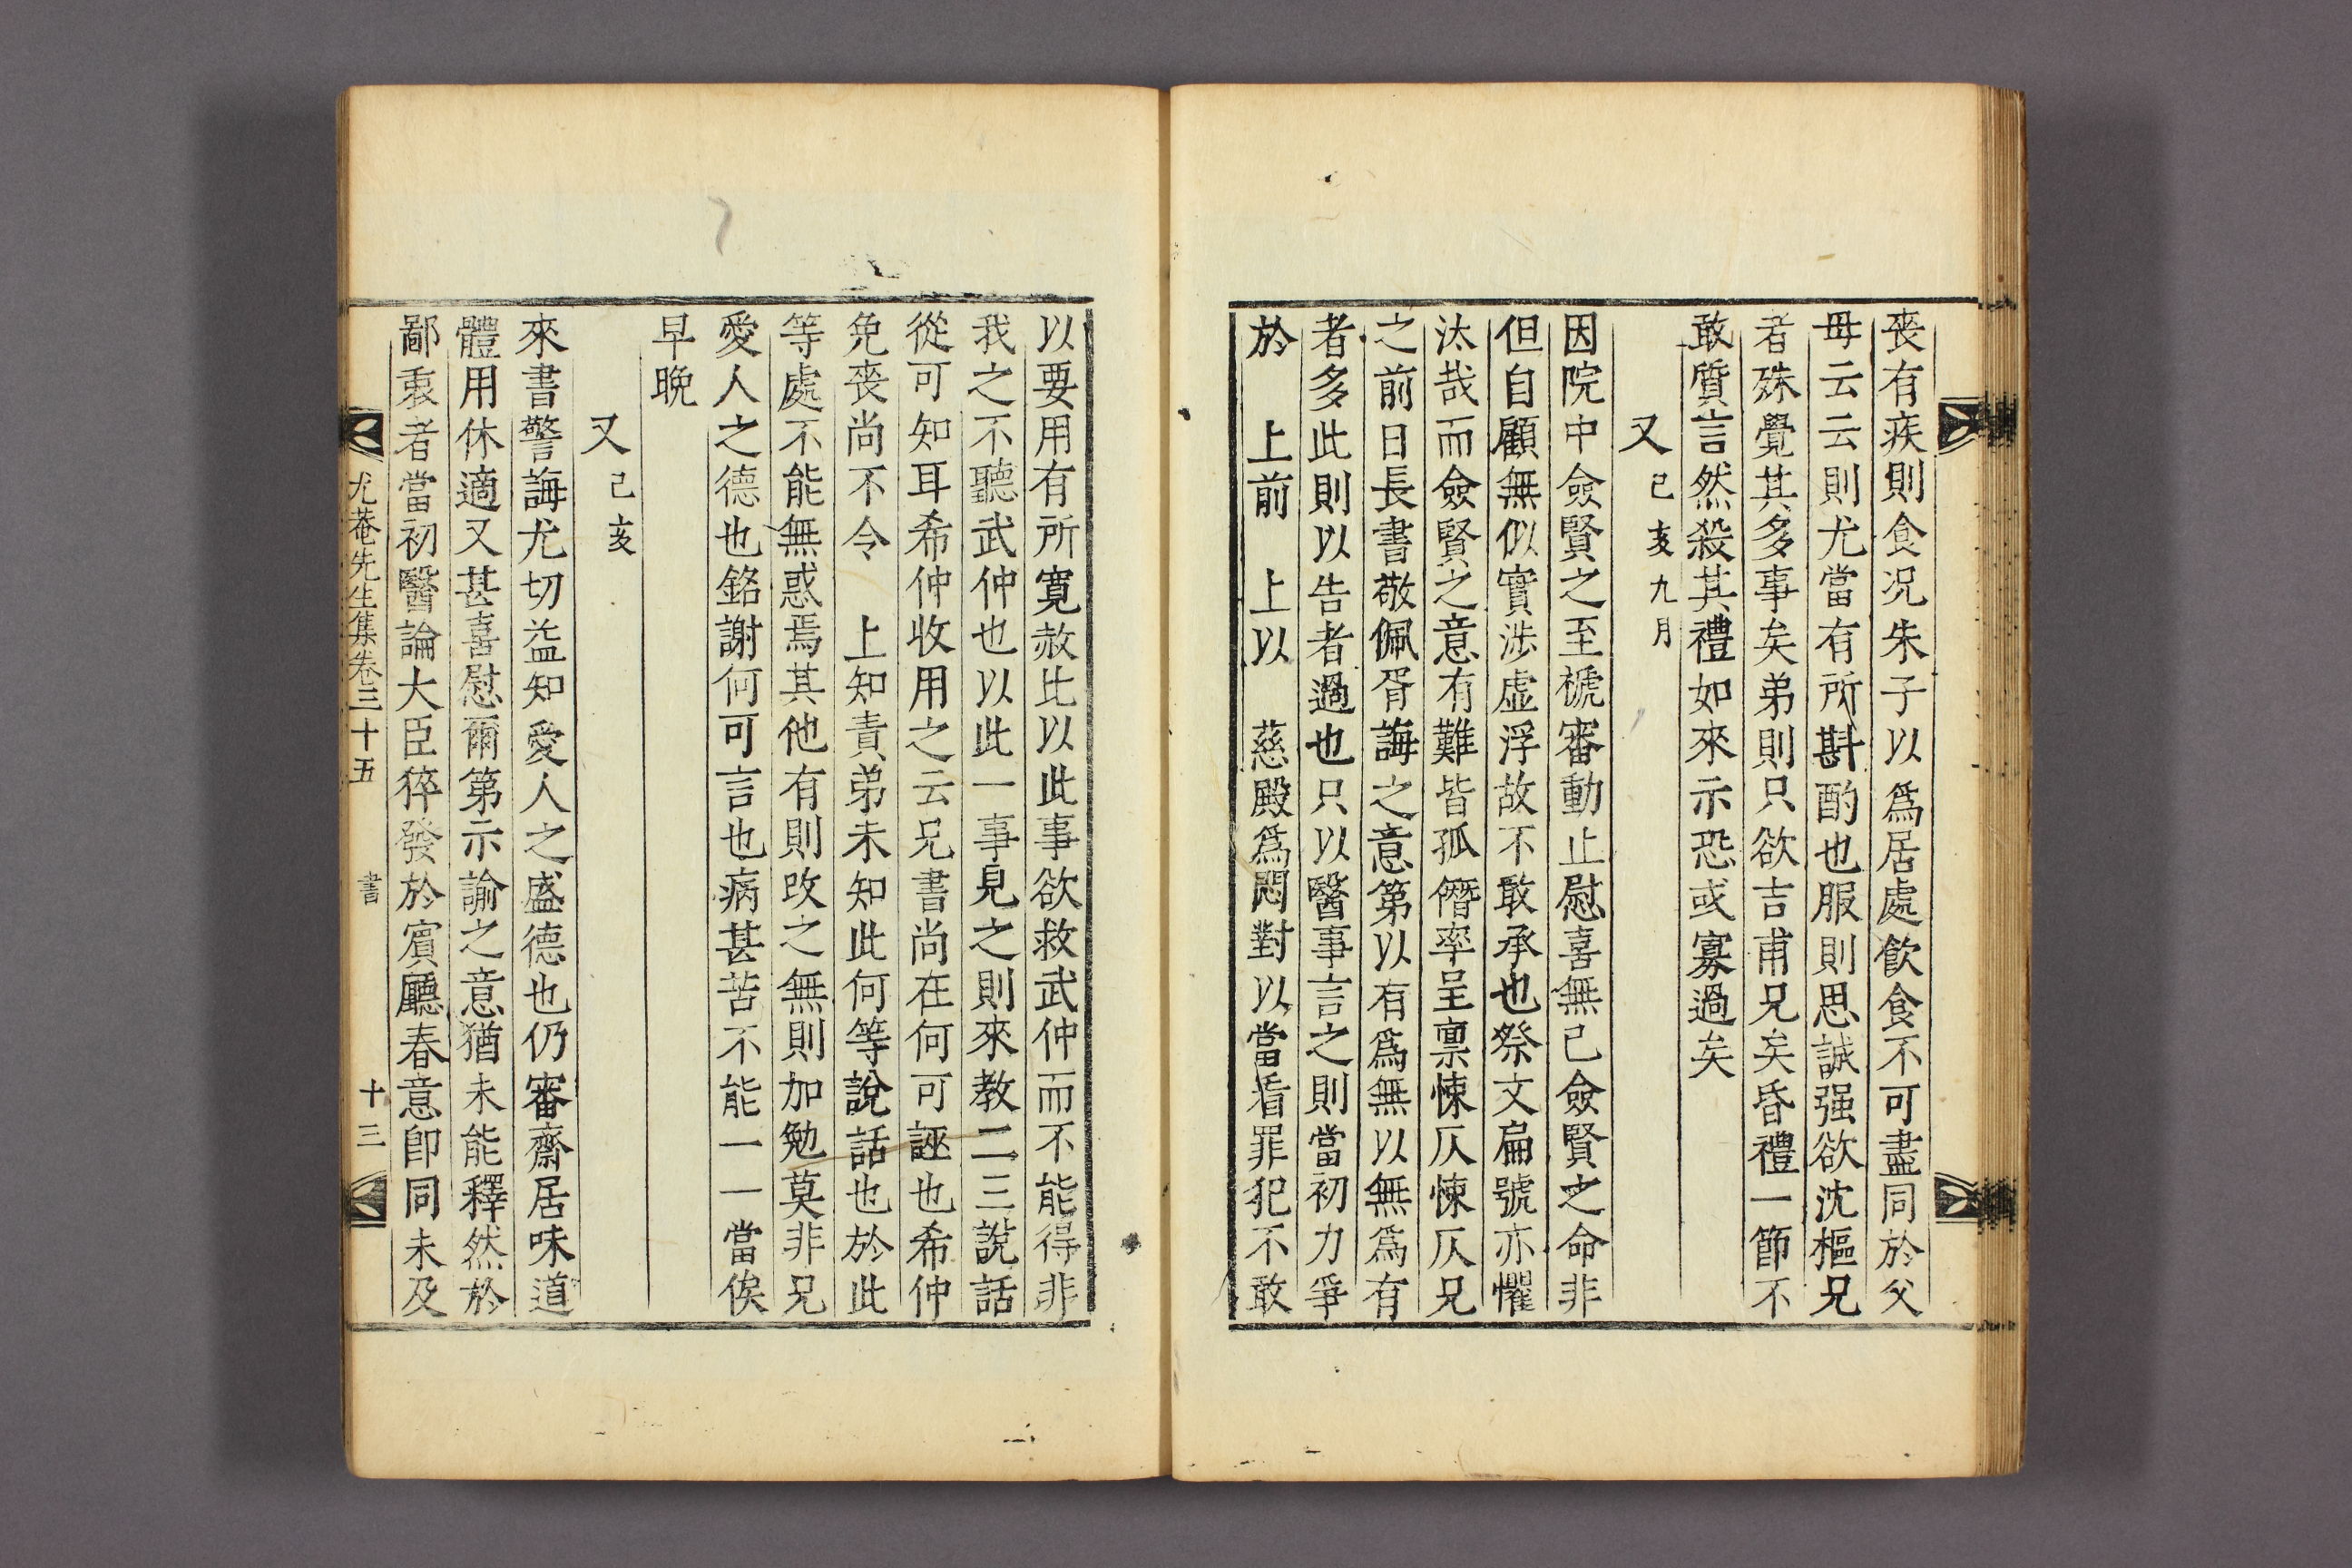 喪有疾則食况朱子以爲居處飮食不可盡同於父
母云云則尤當有所斟酌也服則思誠强欲沈樞兄
者殊覺其多事矣弟則只欲吉甫兄矣昏禮一節不
敢質言然殺其禮如來示恐或寡過矣
又 己亥九月
因院中僉賢之至褫審動止慰喜無已僉賢之命非
但自顧無似實涉虛浮故不敢承也祭文扁號亦懼
汰哉而僉賢之意有難皆孤僭率呈禀悚仄悚仄兄
之前日長書敬佩胥誨之意第以有爲無以無爲有
者多此則以告者過也只以醫事言之則當初力爭
於 上前 上以 慈殿爲悶對以當看罪犯不敢
以要用有所寬赦比以此事欲救武仲而不能得非
我之不聽武仲也以此一事見之則來敎二三說話
從可知耳希仲收用之云兄書尚在何可誣也希仲
免喪尚不令 上知責弟未知此何等說話也於此
等處不能無惑焉其他有則改之無則加勉莫非兄
愛人之德也銘謝何可言也病甚苦不能一一當俟
早晩
又 己亥
來書警誨尤切益知愛人之盛德也仍審齋居味道
體用休適又甚喜慰爾第示諭之意猶未能釋然於
鄙衷者當初醫論大臣猝發於賓廳春意卽同未及
尤菴先生集卷三十五 書 十三